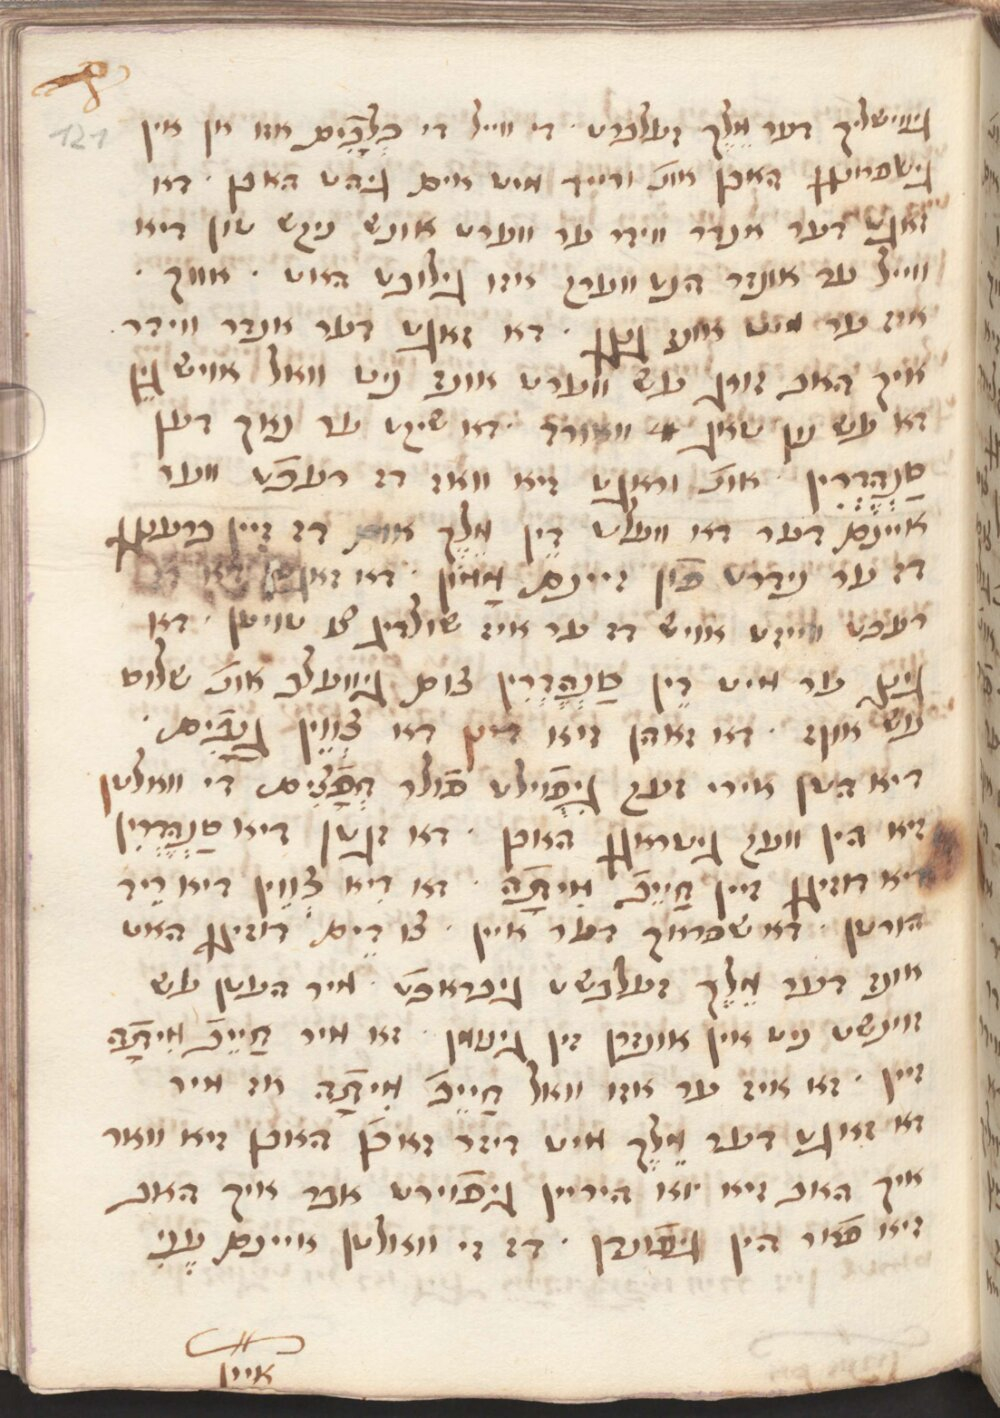 121
גיווישליך דער מֶלֶךְ זעלברט · די ווייל די כְּלָבִים אזו אן אין
האבן אונ' ורייד מיט אים גיהט האבן · דא
זאגט דער אנדר ווידר ער ווערט אונש ניקש טון דיא
ווייל ער אונזר הנט ווערק איזו גילובט האט · אוור ·
איז ער מיט אונז גנגן · דא זאגט דער אנדר ווידר
איך האב זורג עש ווערט אונז ניט וואל אויש גין
דא עש נון טאג וואורד · דא שיקט ער נאך דען
סַנְהֶדְרִין · אונ' וראגט זיא וואז דז רעכט ווער
איינם דער דא וועלט דֵין מֶלֶךְ אום דז זיין ברענגן
דז ער נידרט פון זיינם מָמוֹן · דא זאגטן
רעכט ווייזט אויש דז ער איז שולדיג צו טויטן · דא
גינג ער מיט דֵין סַנְהֶדְרִין צום גיוועלב אונ' שלוס
עש אונז · דא זאהן זיא דיזן דא צְווֵין גַנָבִים ·
דיא הטן אירי זעק גיפוילט פולר חֲפָצִים די וואלטן
זיא הין וועג גיטראגן האבן · דא זגטן דיא סַנְהֶדְרִין
דיא דוזיגן זיין חַיָיב מִיתָה · דא דיא צְווֵין דיא רֵיד
הורטן · דא שפראך דער איין · צו דֵים דוזיגן האט
אונז דער מֶלֶךְ זעלבשט גיבראכט · מיר העטן עש
זוינשט ניט אין אונזרן זין גינומן · זא מיר חַיָיב מִיתָה
זיין · זא איז ער אזו וואל חַיָיב מִיתָה אז מיר
דא זאגט דער מֶלֶךְ מיט דיזר זאכן האבן זיא וואר
איך האב זיא יוא היריין גיפוירט אבר איך האב
זיא פאר הין גיפונדן · דז זי וואלטן איינם עָנִי
איין